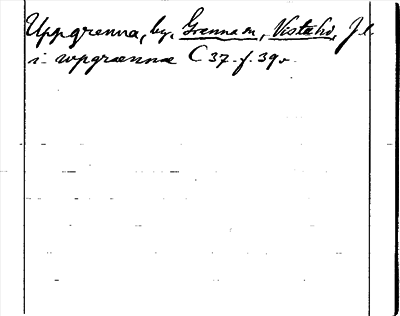 Uppgrenna, by, Grenna sn, Vista hd, J. l.
i upgrænnæ C 37 f. 39v